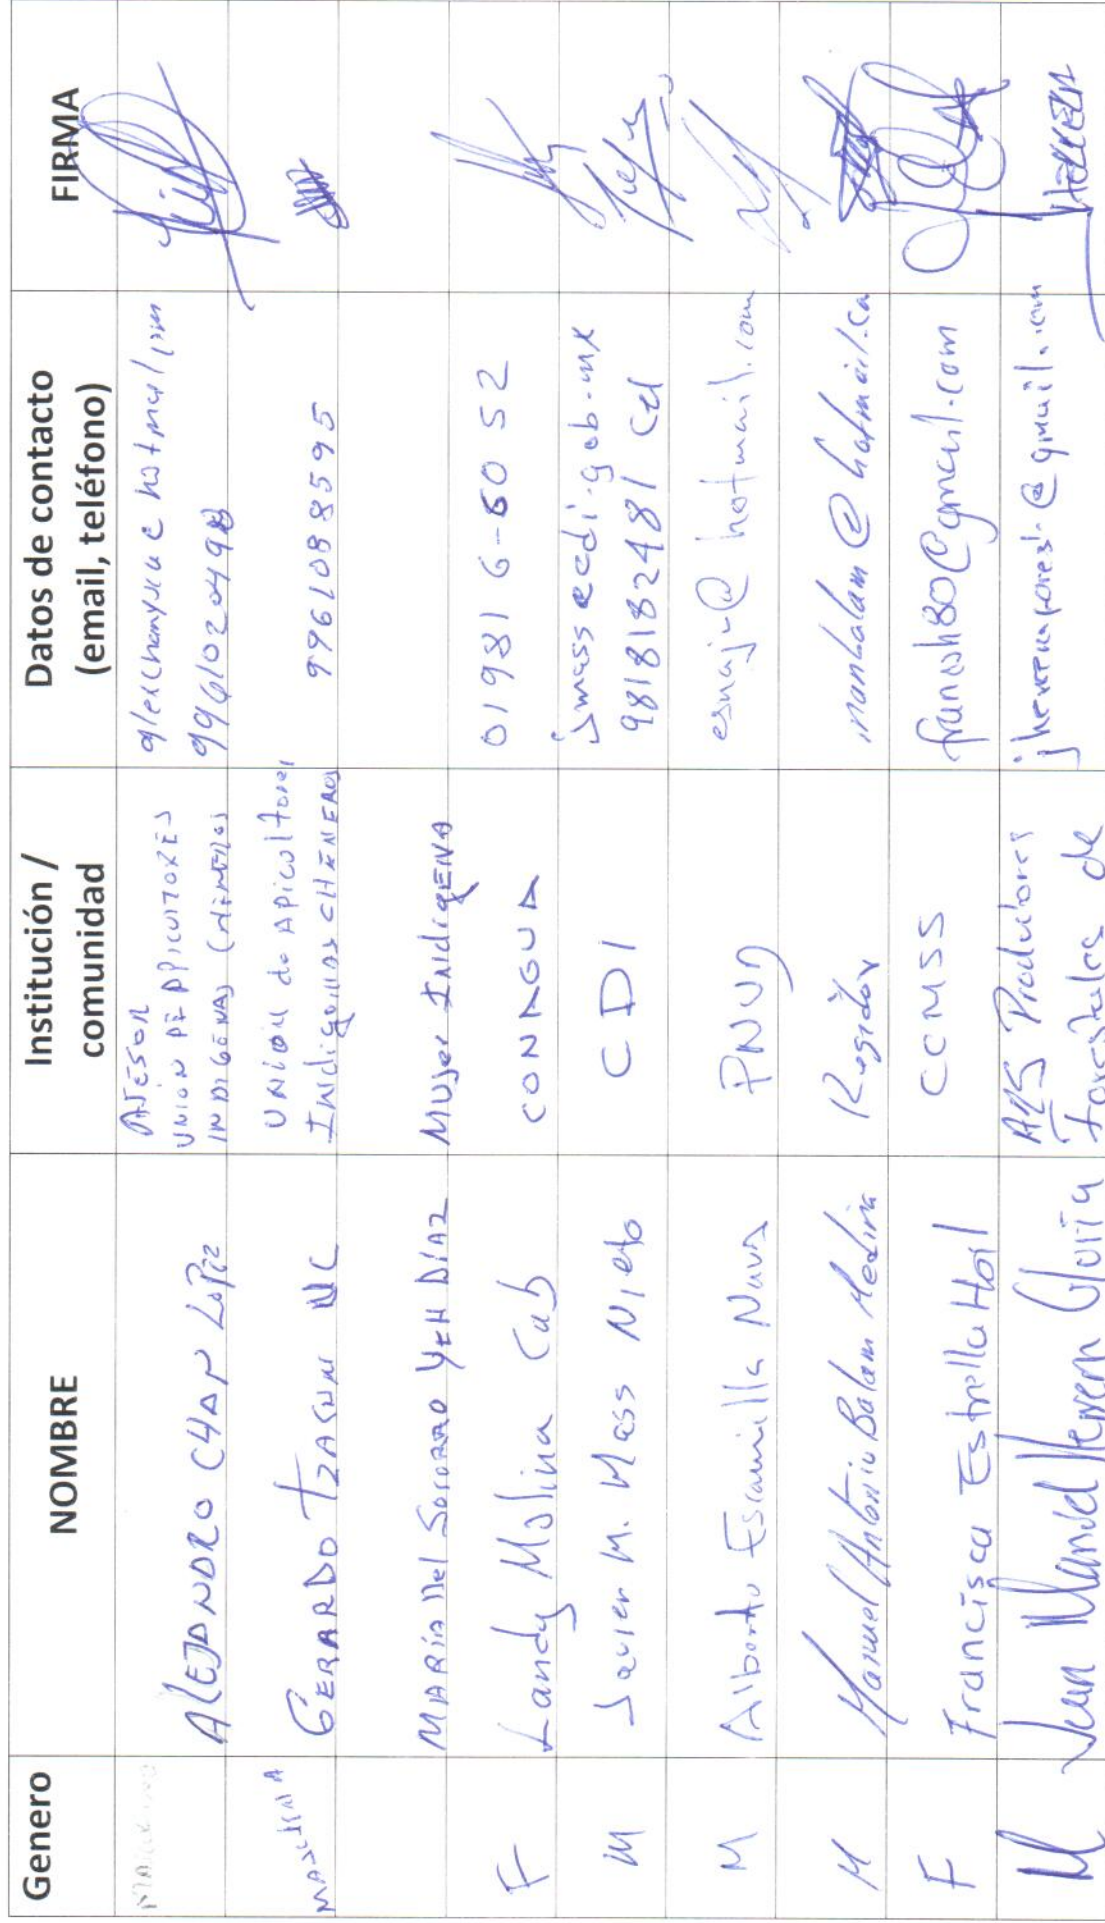 Genero
NOMBRE
Institución /
comunidad
Datos de contacto
(email, teléfono)
FIRMA
ALEJANDRO CHAN LoPEz
ASESOR
UNION DE APICULTORES
INDIGENAS
9961020498
GERARDO TZACUM UC
UNIÓN de APicultores
INdigeNAS CHENEROS
9961088595
MARÍA Del Socorro YEH DÍAZ
MUjer INdigENA
F
Landy Molina Cab
CONAGUA
01981 6-60 52
M
Javier M. Mass Nieto
CDI
jmass@cdi.gob.mx
9818182481 Cel
M
Alberto Escamilla Nava
PNUD
esnaj@hotmail.com
M
Manuel Antonio Balam Medina
Regidor
manbalam@hotmail.co
F
Francisca Estrella Hol
CCMSS
M
Juan Manuel Herrera Gloria
APS Productores
Forestales de